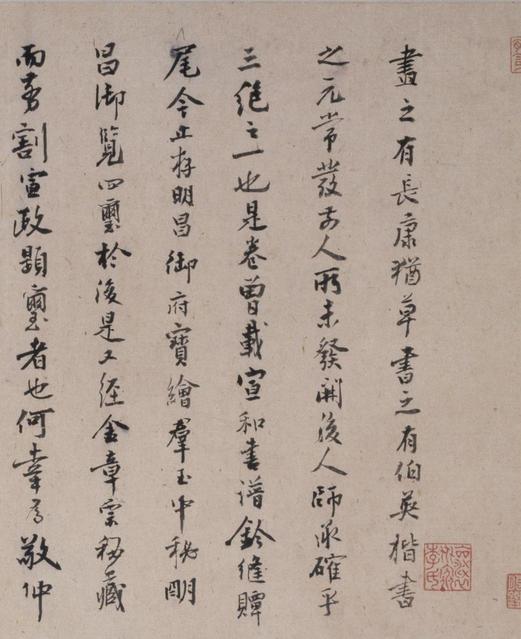 畫之有長康猶草書之有伯英楷書
之元常發前人所未發開後人師承確乎
三絕之一也是卷曾載宣和書譜鈐縫贉
尾今止存明昌御府寶繪羣玉中秘明
昌御覽四璽於後是又經金章宗秘藏
而剪割宣政題璽者也何幸為敬仲